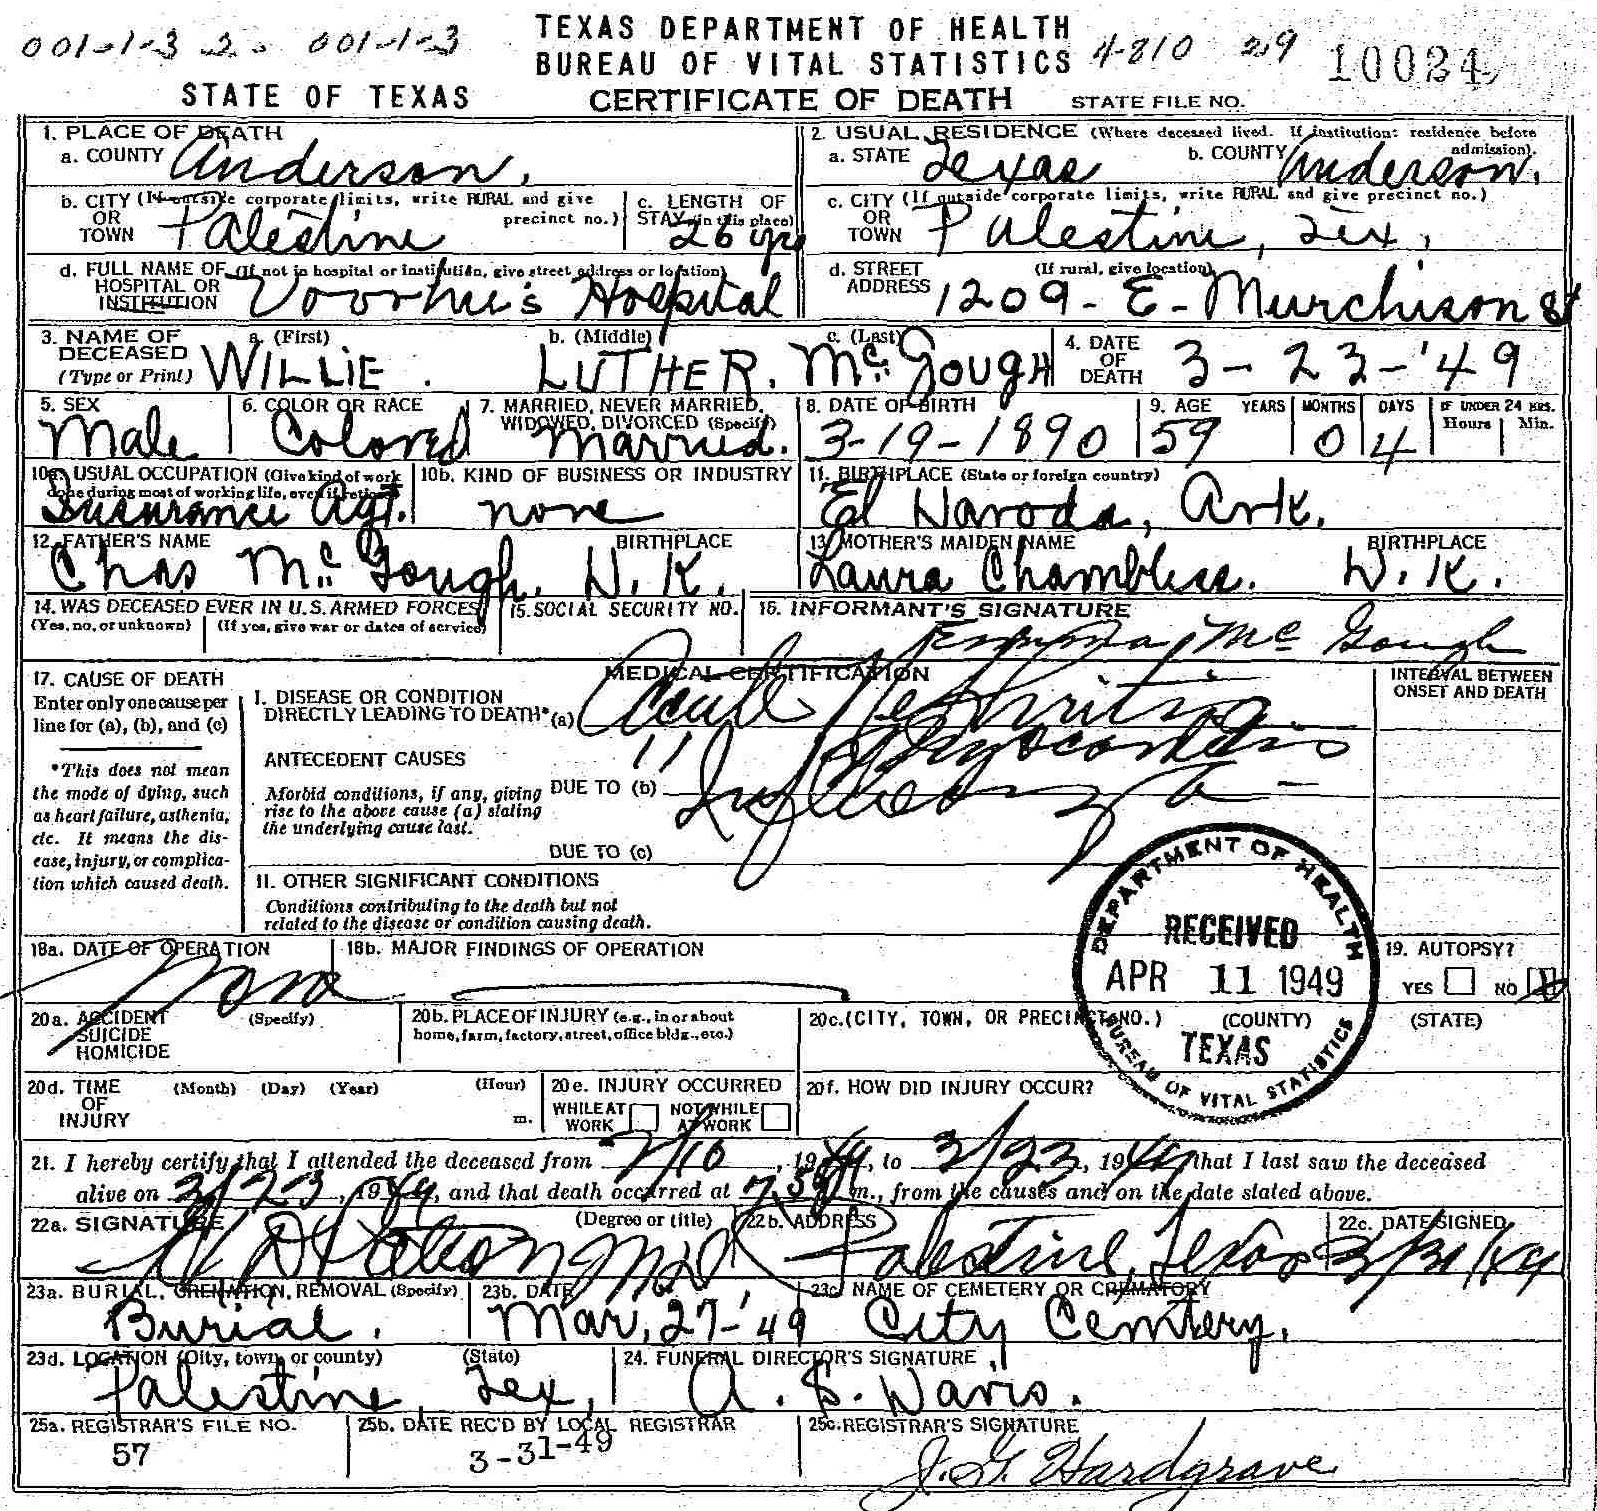 001-1-3 2. 001-1-3
TEXAS DEPARTMENT OF HEALTH
BUREAU OF VITAL STATISTICS
4-810 29 10024
STATE OF TEXAS CERTIFICATE OF DEATH STATE FILE NO.
1. PLACE OF DEATH
a. COUNTY Anderson.
2. USUAL RESIDENCE (Where deceased lived. If institution: residence before admission).
a. STATE Texas b. COUNTY Anderson.
b. CITY (If outside corporate limits, write RURAL and give precinct no.)
OR
TOWN Palestine
c. LENGTH OF
STAY (in this place)
26 yrs
c. CITY (If outside corporate limits, write RURAL and give precinct no.)
OR
TOWN Palestine, Tex,
d. FULL NAME OF (If not in hospital or institution, give street address or location)
HOSPITAL OR
INSTITUTION Voorhie's Hospital
d. STREET (If rural, give location)
ADDRESS 1209-E-Murchison St
3. NAME OF
DECEASED
(Type or Print)
a. (First) b. (Middle) c. (Last)
WILLIE. LUTHER. McGough
4. DATE
OF
DEATH 3-23-'49
5. SEX
Male
6. COLOR OR RACE
Colored
7. MARRIED, NEVER MARRIED,
WIDOWED, DIVORCED (Specify)
Married.
8. DATE OF BIRTH
3-19-1890
9. AGE YEARS MONTHS DAYS IF UNDER 24 HRS.
Hours Min.
59 0 4
10a. USUAL OCCUPATION (Give kind of work
done during most of working life, even if retired)
Insurance Agt.
10b. KIND OF BUSINESS OR INDUSTRY
none
11. BIRTHPLACE (State or foreign country)
El Daroda, Ark.
12. FATHER'S NAME BIRTHPLACE
Chas McGough. D.K.
13. MOTHER'S MAIDEN NAME BIRTHPLACE
Laura Chambliss. D.K.
14. WAS DECEASED EVER IN U.S. ARMED FORCES
(Yes, no, or unknown) (If yes, give war or dates of service)
15. SOCIAL SECURITY NO.
16. INFORMANT'S SIGNATURE
Emma McGough
MEDICAL CERTIFICATION
17. CAUSE OF DEATH
Enter only one cause per
line for (a), (b), and (c)
*This does not mean
the mode of dying, such
as heart failure, asthenia,
etc. It means the dis-
ease, injury, or complica-
tion which caused death.
I. DISEASE OR CONDITION
DIRECTLY LEADING TO DEATH* (a) Acute Nephritis
" Myocarditis
ANTECEDENT CAUSES
Morbid conditions, if any, giving
rise to the above cause (a) stating
the underlying cause last.
DUE TO (b) Influenza -
DUE TO (c)
II. OTHER SIGNIFICANT CONDITIONS
Conditions contributing to the death but not
related to the disease or condition causing death.
INTERVAL BETWEEN
ONSET AND DEATH
DEPARTMENT OF HEALTH
RECEIVED
APR 11 1949
TEXAS
BUREAU OF VITAL STATISTICS
18a. DATE OF OPERATION
None
18b. MAJOR FINDINGS OF OPERATION
19. AUTOPSY?
YES NO
20a. ACCIDENT (Specify)
SUICIDE
HOMICIDE
20b. PLACE OF INJURY (e.g., in or about
home, farm, factory, street, office bldg., etc.)
20c. (CITY, TOWN, OR PRECINCT NO.) (COUNTY) (STATE)
20d. TIME (Month) (Day) (Year) (Hour)
OF
INJURY m.
20e. INJURY OCCURRED
WHILE AT WORK NOT WHILE AT WORK
20f. HOW DID INJURY OCCUR?
21. I hereby certify that I attended the deceased from 2/10, 1949, to 3/23, 1949 that I last saw the deceased
alive on 3/23, 1949, and that death occurred at m., from the causes and on the date stated above.
22a. SIGNATURE (Degree or title)
MD
22b. ADDRESS
Palestine, Texas
22c. DATE SIGNED
3/31/49
23a. BURIAL, CREMATION, REMOVAL (Specify)
Burial.
23b. DATE
Mar, 27-'49
23c. NAME OF CEMETERY OR CREMATORY
City Cemtery.
23d. LOCATION (City, town, or county) (State)
Palestine, Tex,
24. FUNERAL DIRECTOR'S SIGNATURE
A. S. Davis.
25a. REGISTRAR'S FILE NO.
57
25b. DATE REC'D BY LOCAL REGISTRAR
3-31-49
25c. REGISTRAR'S SIGNATURE
J. G. Hardgrave